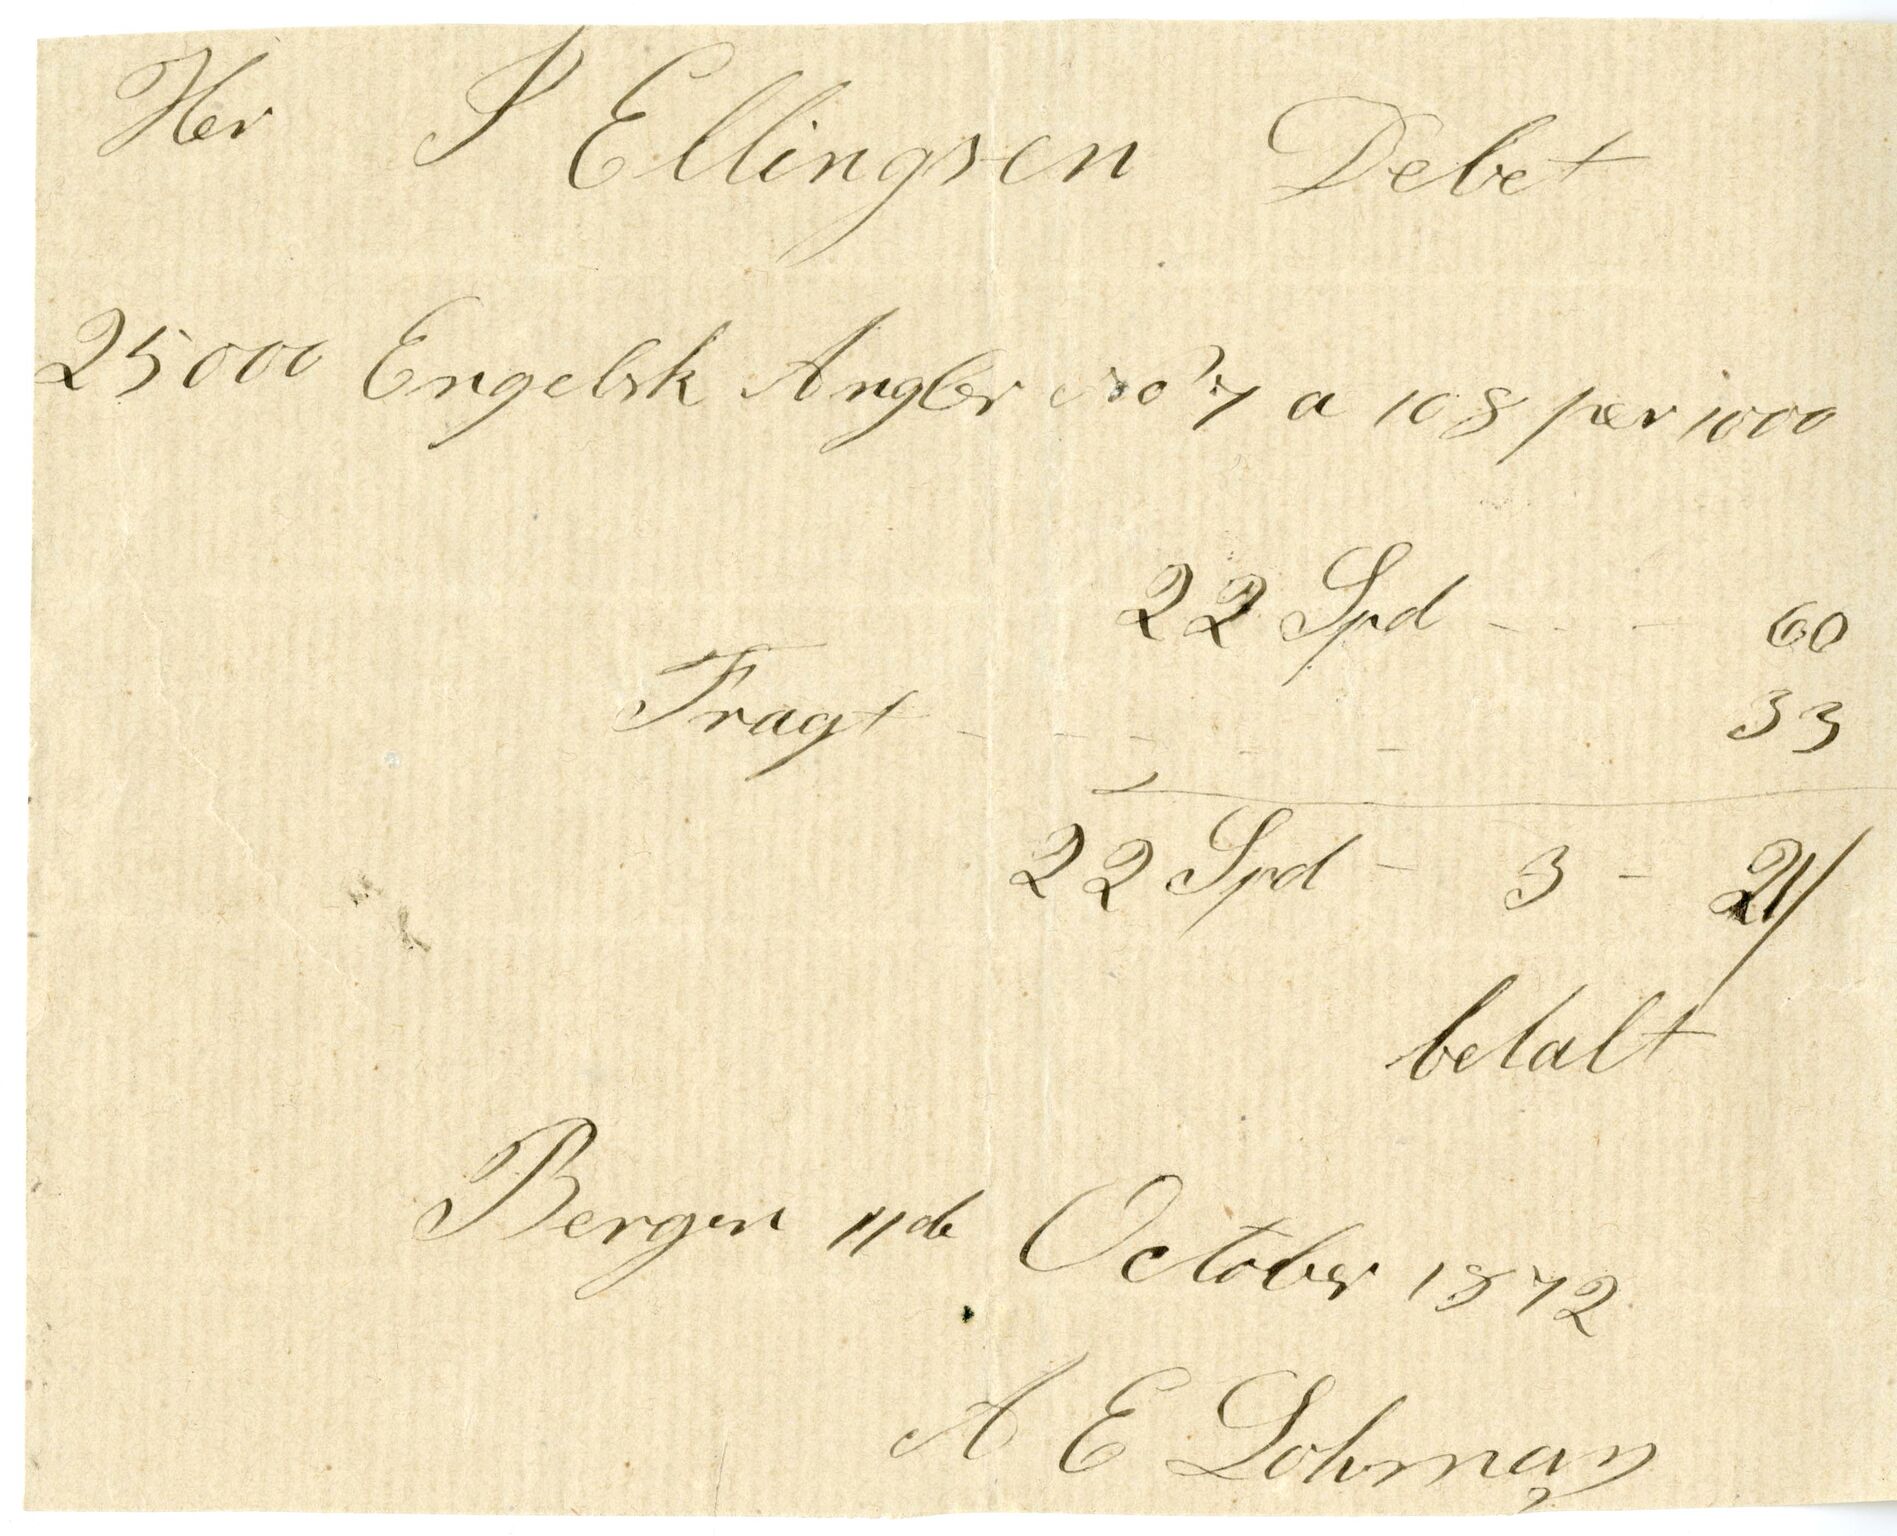 Her Ellingsen Debet
25000 Engelsk Angler No 7 a 108 pær 1000
22 Spd - - - 60
Fragt - - - - - - 33
22 Spd - 3 - 21/
betalt
Bergen 11de October 1872
A E Lohman